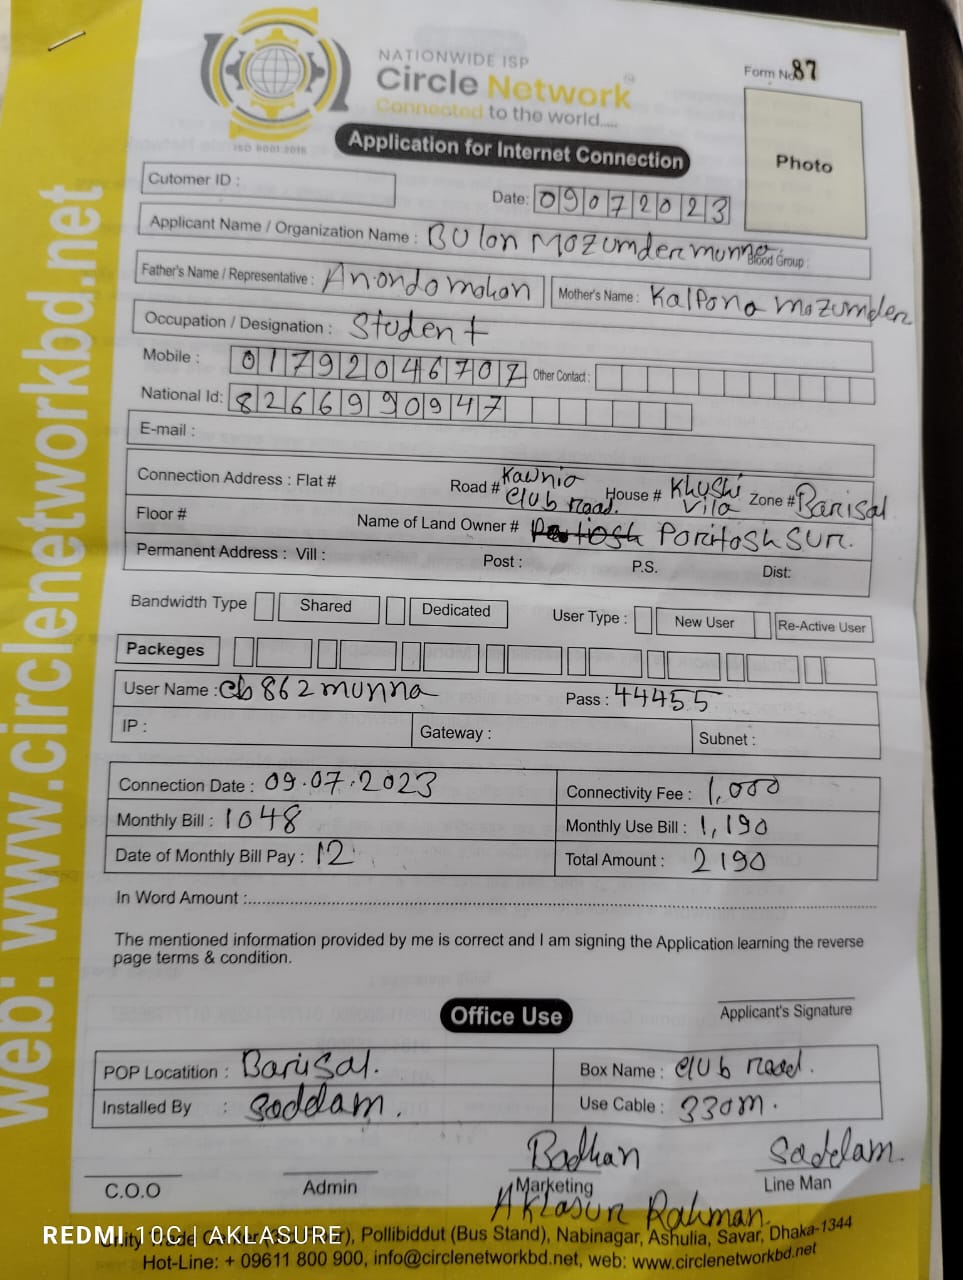 NATIONWIDE ISP
Circle Network
Connected to the world.....
ISO 9001:2015
Form No 87
Application for Internet Connection
Photo
Cutomer ID :
Date: 09072023
Applicant Name / Organization Name : BUlon Mozumder munna Blood Group :
Father's Name / Representative : Anondomohon Mother's Name : Kalpona mozumder
Occupation / Designation : Student
Mobile : 01792046707 Other Contact :
National Id: 8266990947
E-mail :
Connection Address : Flat # Road # Kawnia club road. House # Khushi Vila Zone # Barisal
Floor # Name of Land Owner # Poritosh Sur.
Permanent Address : Vill : Post : P.S. Dist:
Bandwidth Type Shared Dedicated User Type : New User Re-Active User
Packeges
User Name : cb862munna Pass : 44455
IP : Gateway : Subnet :
Connection Date : 09.07.2023 Connectivity Fee : 1,000
Monthly Bill : 1048 Monthly Use Bill : 1,190
Date of Monthly Bill Pay : 12 Total Amount : 2190
In Word Amount :
The mentioned information provided by me is correct and I am signing the Application learning the reverse
page terms & condition.
Applicant's Signature
Office Use
POP Locatition : Barisal. Box Name : club road.
Installed By : Saddam. Use Cable : 330m.
Badhan Saddam.
C.O.O Admin Marketing Line Man
Aklasur Rahman.
REDMI 10C | AKLASURE
Pollibiddut (Bus Stand), Nabinagar, Ashulia, Savar, Dhaka-1344
Hot-Line: + 09611 800 900, info@circlenetworkbd.net, web: www.circlenetworkbd.net
web: www.circlenetworkbd.net